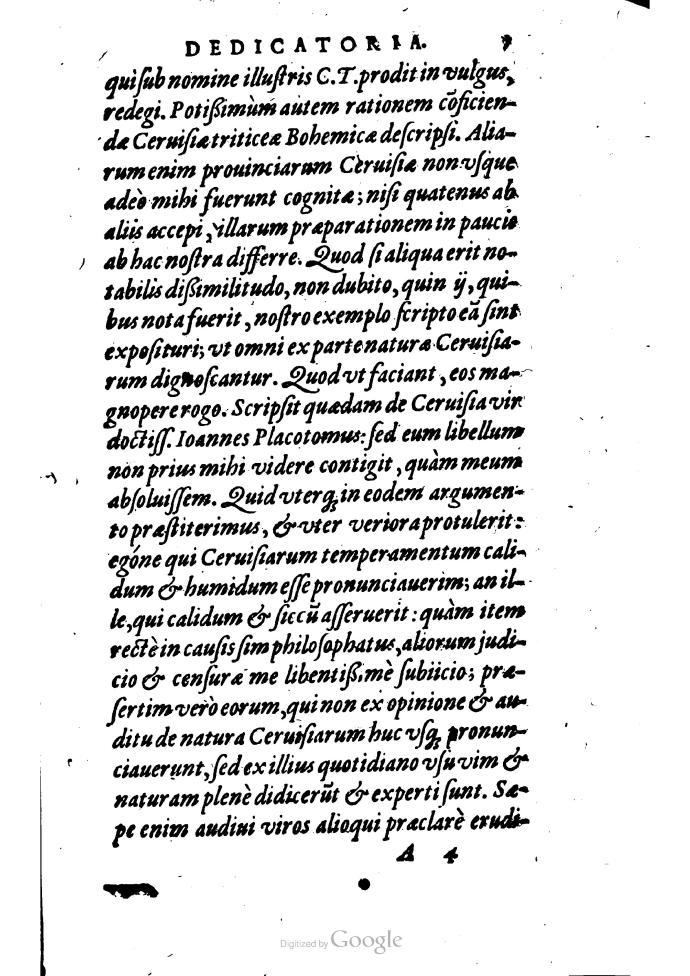 DEDICATORIA.
qui ſub nomine illuſtris C.T. prodit in vulgus,
redegi. Potißimùm autem rationem cōficien-
dæ Ceruiſiæ triticeæ Bohemicæ deſcripſi. Alia-
rum enim prouinciarum Ceruiſiæ non vſque
adeò mihi fuerunt cognitæ; niſi quatenus ab
aliis accepi, illarum præparationem in paucis
ab hac noſtra differre. Quod ſi aliqua erit no-
tabilis dißimilitudo, non dubito, quin ij, qui-
bus nota fuerit, noſtro exemplo ſcripto eā ſint
expoſituri; vt omni ex parte naturæ Ceruiſia-
rum dignoſcantur. Quod vt faciant, eos ma-
gnopere rogo. Scripſit quædam de Ceruiſia vir
doctiſſ. Ioannes Placotomus: ſed eum libellum
non prius mihi videre contigit, quàm meum
abſoluiſſem. Quid vterq; in eodem argumen-
to præſtiterimus, & vter veriora protulerit:
egóne qui Ceruiſiarum temperamentum cali-
dum & humidum eſſe pronunciauerim; an il-
le, qui calidum & ſiccū aſſeruerit: quàm item
rectè in cauſis ſim philoſophatus, aliorum judi-
cio & cenſuræ me libentißimè ſubiicio; præ-
ſertim verò eorum, qui non ex opinione & au-
ditu de natura Ceruiſiarum huc vſq; pronun-
ciauerunt, ſed ex illius quotidiano vſu vim &
naturam plenè didicerūt & experti ſunt. Sæ-
pe enim audiui viros alioqui præclarè erudi-
A 4
Digitized by Google